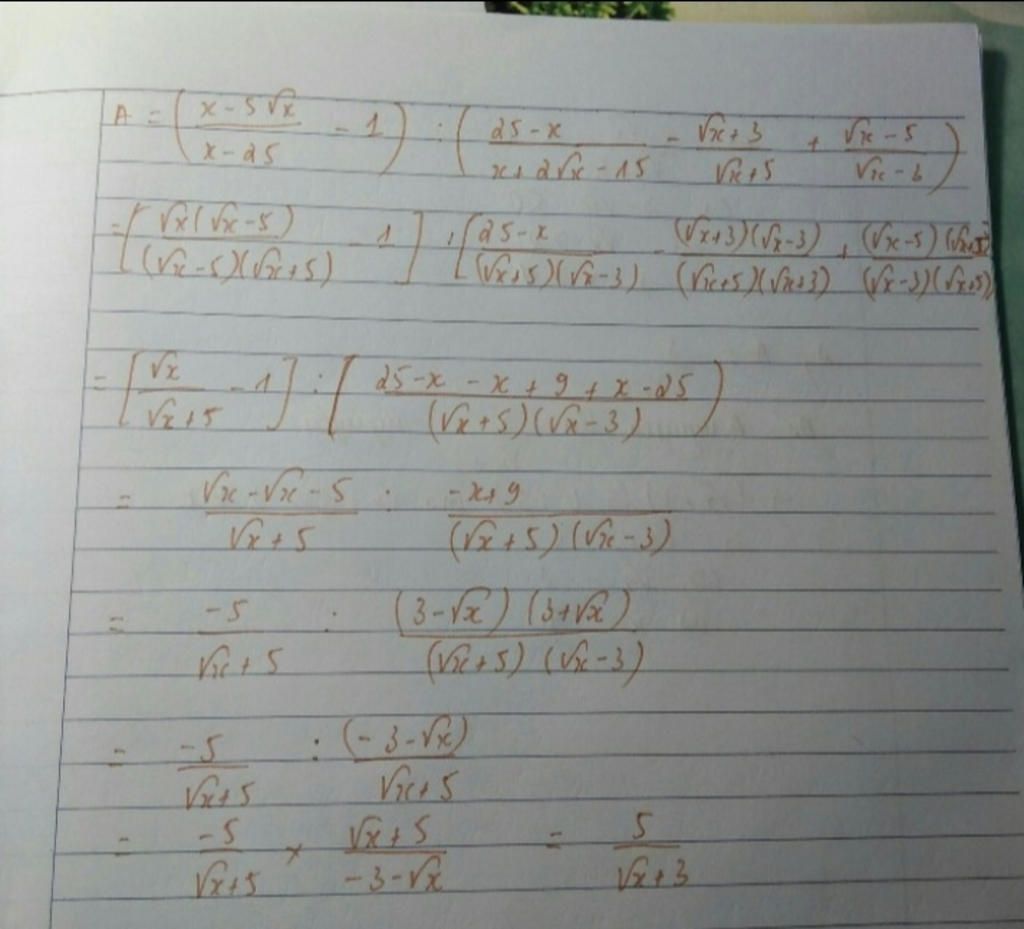 A = ( (x - 5√x)/(x - 25) - 1 ) : ( (25 - x)/(x + 2√x - 15) - (√x + 3)/(√x + 5) + (√x - 5)/(√x - 3) )
= [ √x(√x - 5)/((√x - 5)(√x + 5)) - 1 ] : [ (25 - x)/((√x + 5)(√x - 3)) - (√x + 3)(√x - 3)/((√x + 5)(√x + 3)) + (√x - 5)(√x + 5)/((√x - 3)(√x + 5))
= [ √x/(√x + 5) - 1 ] : [ (25 - x - x + 9 + x - 25)/((√x + 5)(√x - 3)) )
= (√x - √x - 5)/(√x + 5) : (-x + 9)/((√x + 5)(√x - 3))
= -5/(√x + 5) : (3 - √x)(3 + √x)/((√x + 5)(√x - 3))
= -5/(√x + 5) : (-3 - √x)/(√x + 5)
= -5/(√x + 5) × (√x + 5)/(-3 - √x) = 5/(√x + 3)